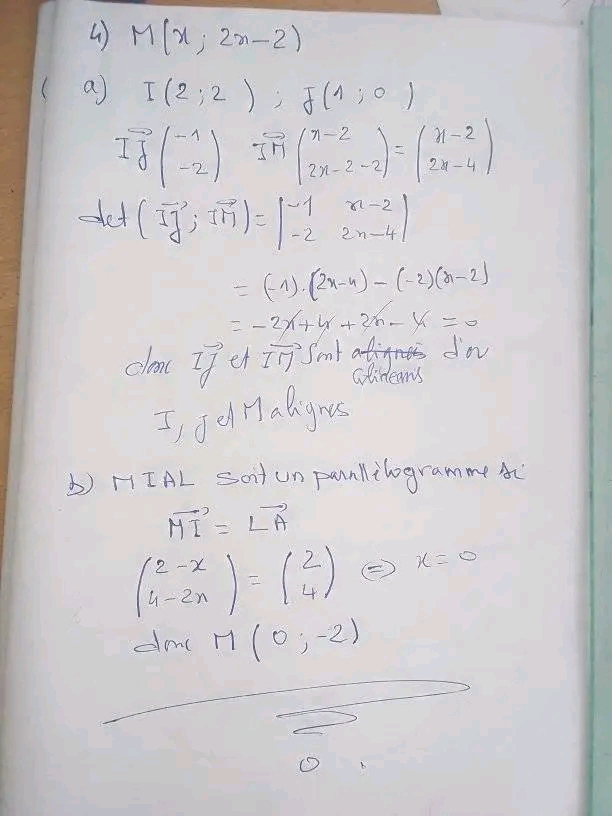 4) M(x ; 2x-2)
a) I(2 ; 2) ; J(1 ; 0)
IJ→ (-1 -2) IM→ (x-2 2x-2-2) = (x-2 2x-4)
det(IJ→ ; IM→) = |-1 x-2 -2 2x-4|
= (-1).(2x-4) - (-2)(x-2)
= -2x+4+2x-4 = 0
donc IJ→ et IM→ sont alignés d'où
colinéaires
I, J et M alignés
b) MIAL soit un parallélogramme si
MI→ = LA→
(2-x 4-2x) = (2 4) ⇔ x = 0
donc M(0 ; -2)